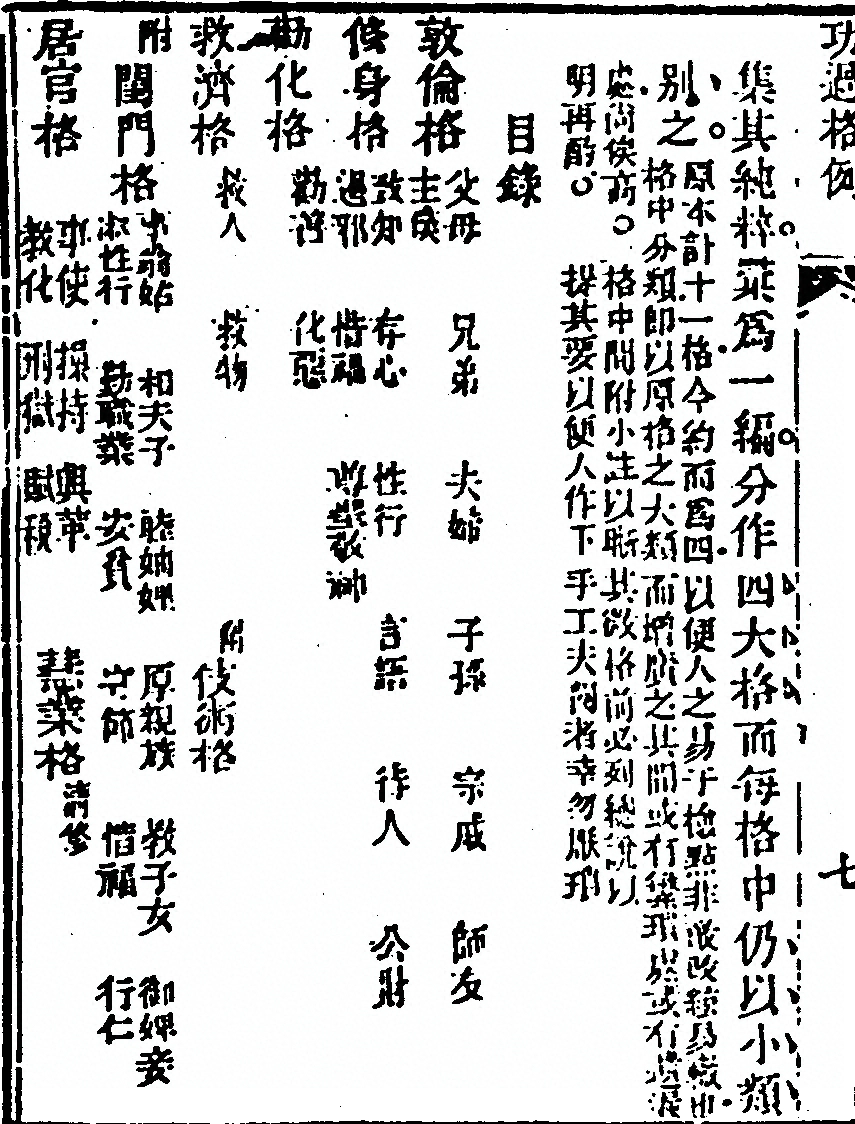 功過格例
七
集其純粹彙為一編分作四大格而每格中仍以小類
別之
原本計十一格今約而為四以便人之易于檢點非敢改轅易轍也
格中分類即以原格之大類而增廣之其間或有繁瑣處或有遺漏
處尚俟商
格中間附小註以晰其微格前必列總說以
明再酌
提其要以便人作下手工夫閱者幸勿厭瑣
目錄
敦倫格
父母 兄弟 夫婦 子孫 宗戚 師友
主僕
修身格
致知 存心 性行 言語 待人 公財
遏邪 惜福 崇敬神
勸化格
勸善 化惡
救濟格
救人 救物
附 伎術格
附 閨門格
事翁姑 和夫子 睦妯娌 厚親族 教子女 御婢妾
淑性行 勤職業 安貧 守節 惜福 行仁
居官格
率使 操持 興革
教化 刑獄 賦稅
慧業格
清修